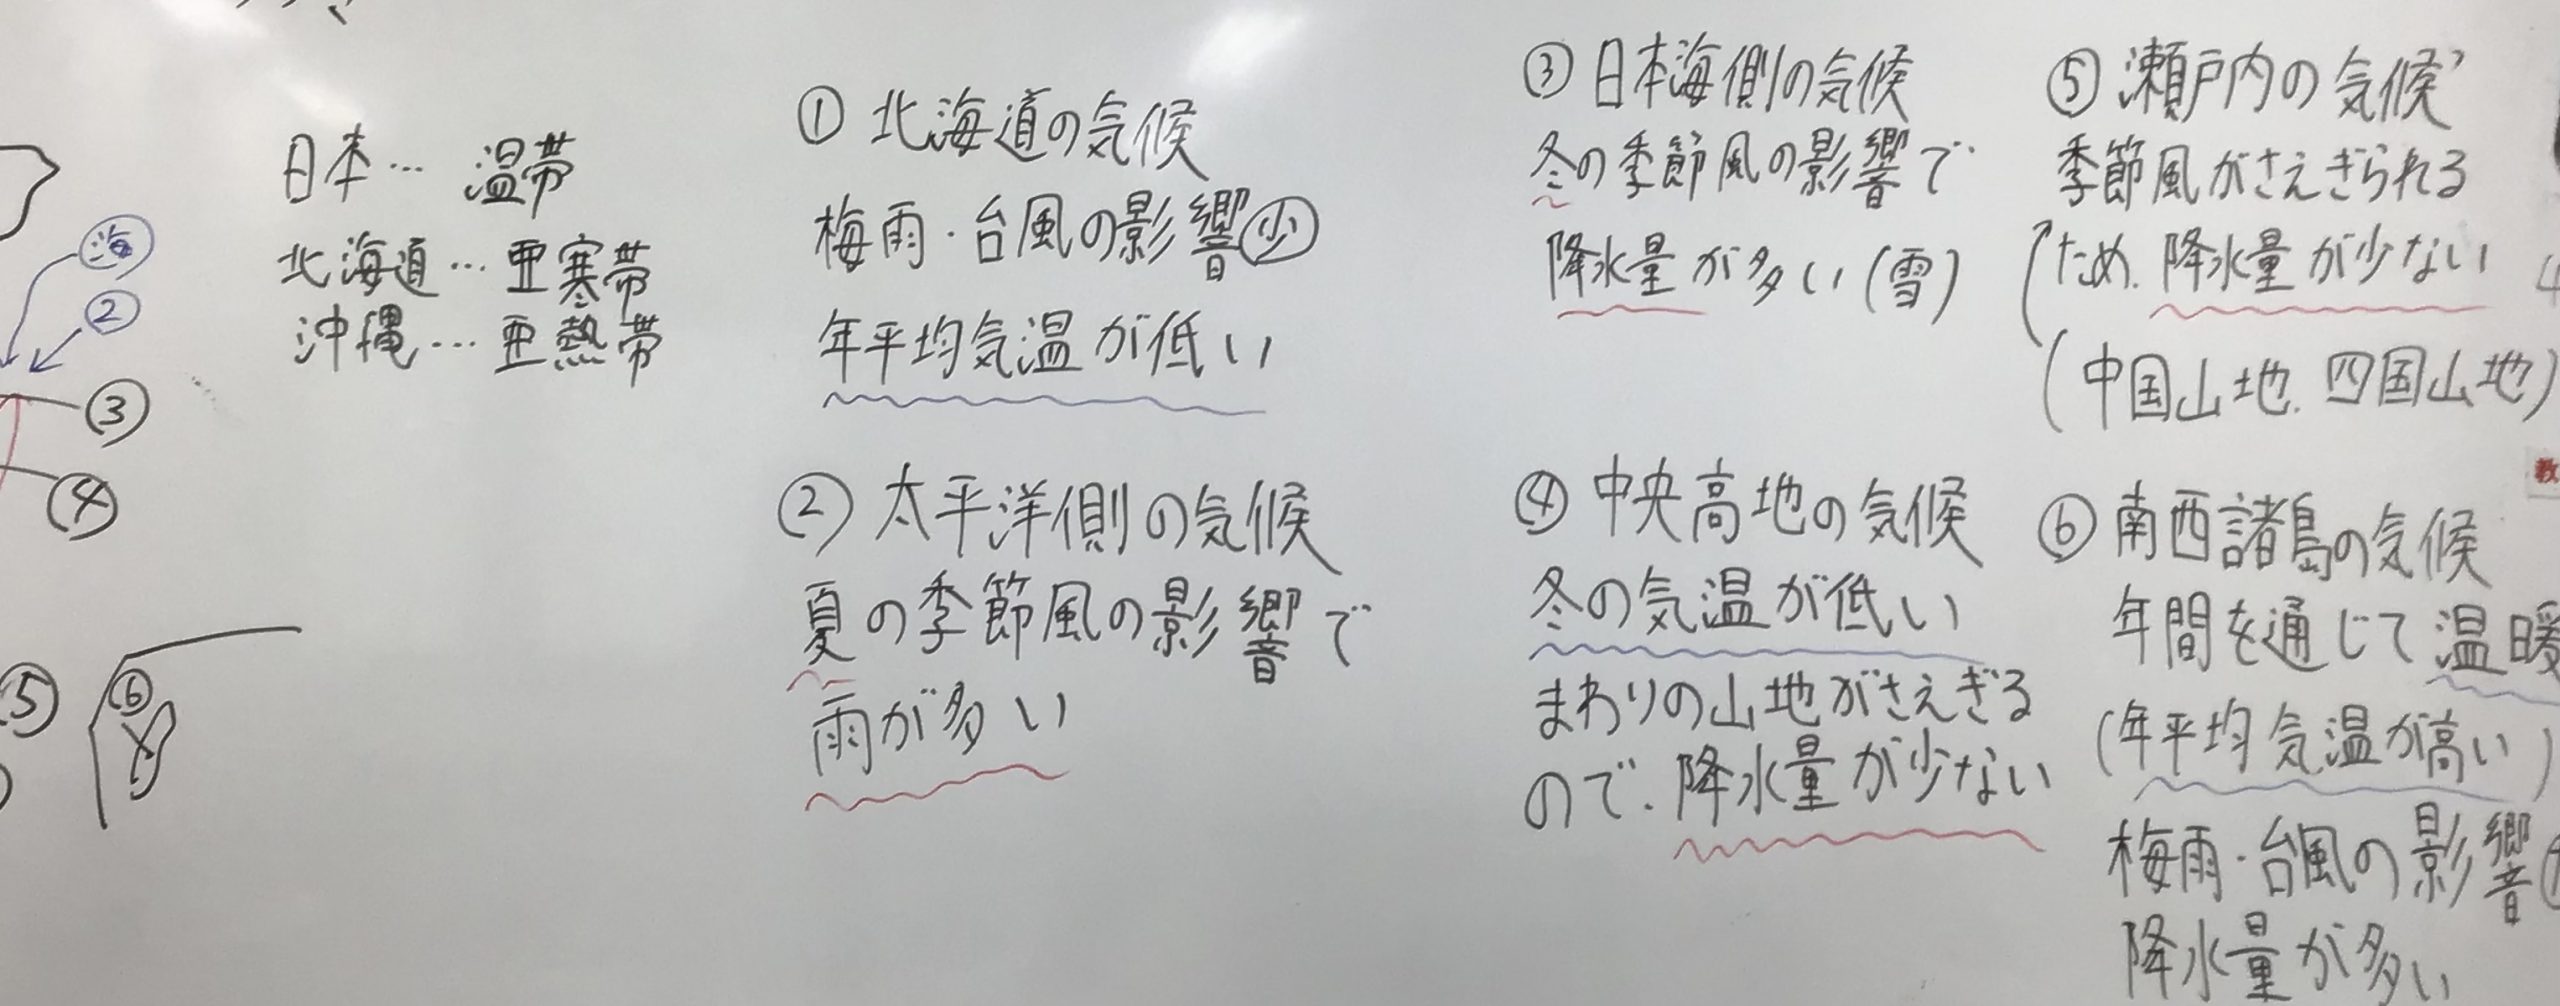 海
②
③
④
⑤
⑥
日本… 温帯
北海道…亜寒帯
沖縄…亜熱帯
① 北海道の気候
梅雨・台風の影響少
年平均気温が低い
② 太平洋側の気候
夏の季節風の影響で
雨が多い
③ 日本海側の気候
冬の季節風の影響で
降水量が多い(雪)
④ 中央高地の気候
冬の気温が低い
まわりの山地がさえぎる
ので、降水量が少ない
⑤ 瀬戸内の気候
季節風がさえぎられる
ため、降水量が少ない
(中国山地、四国山地)
⑥ 南西諸島の気候
年間を通じて温暖
(年平均気温が高い)
梅雨・台風の影響
降水量が多い
教